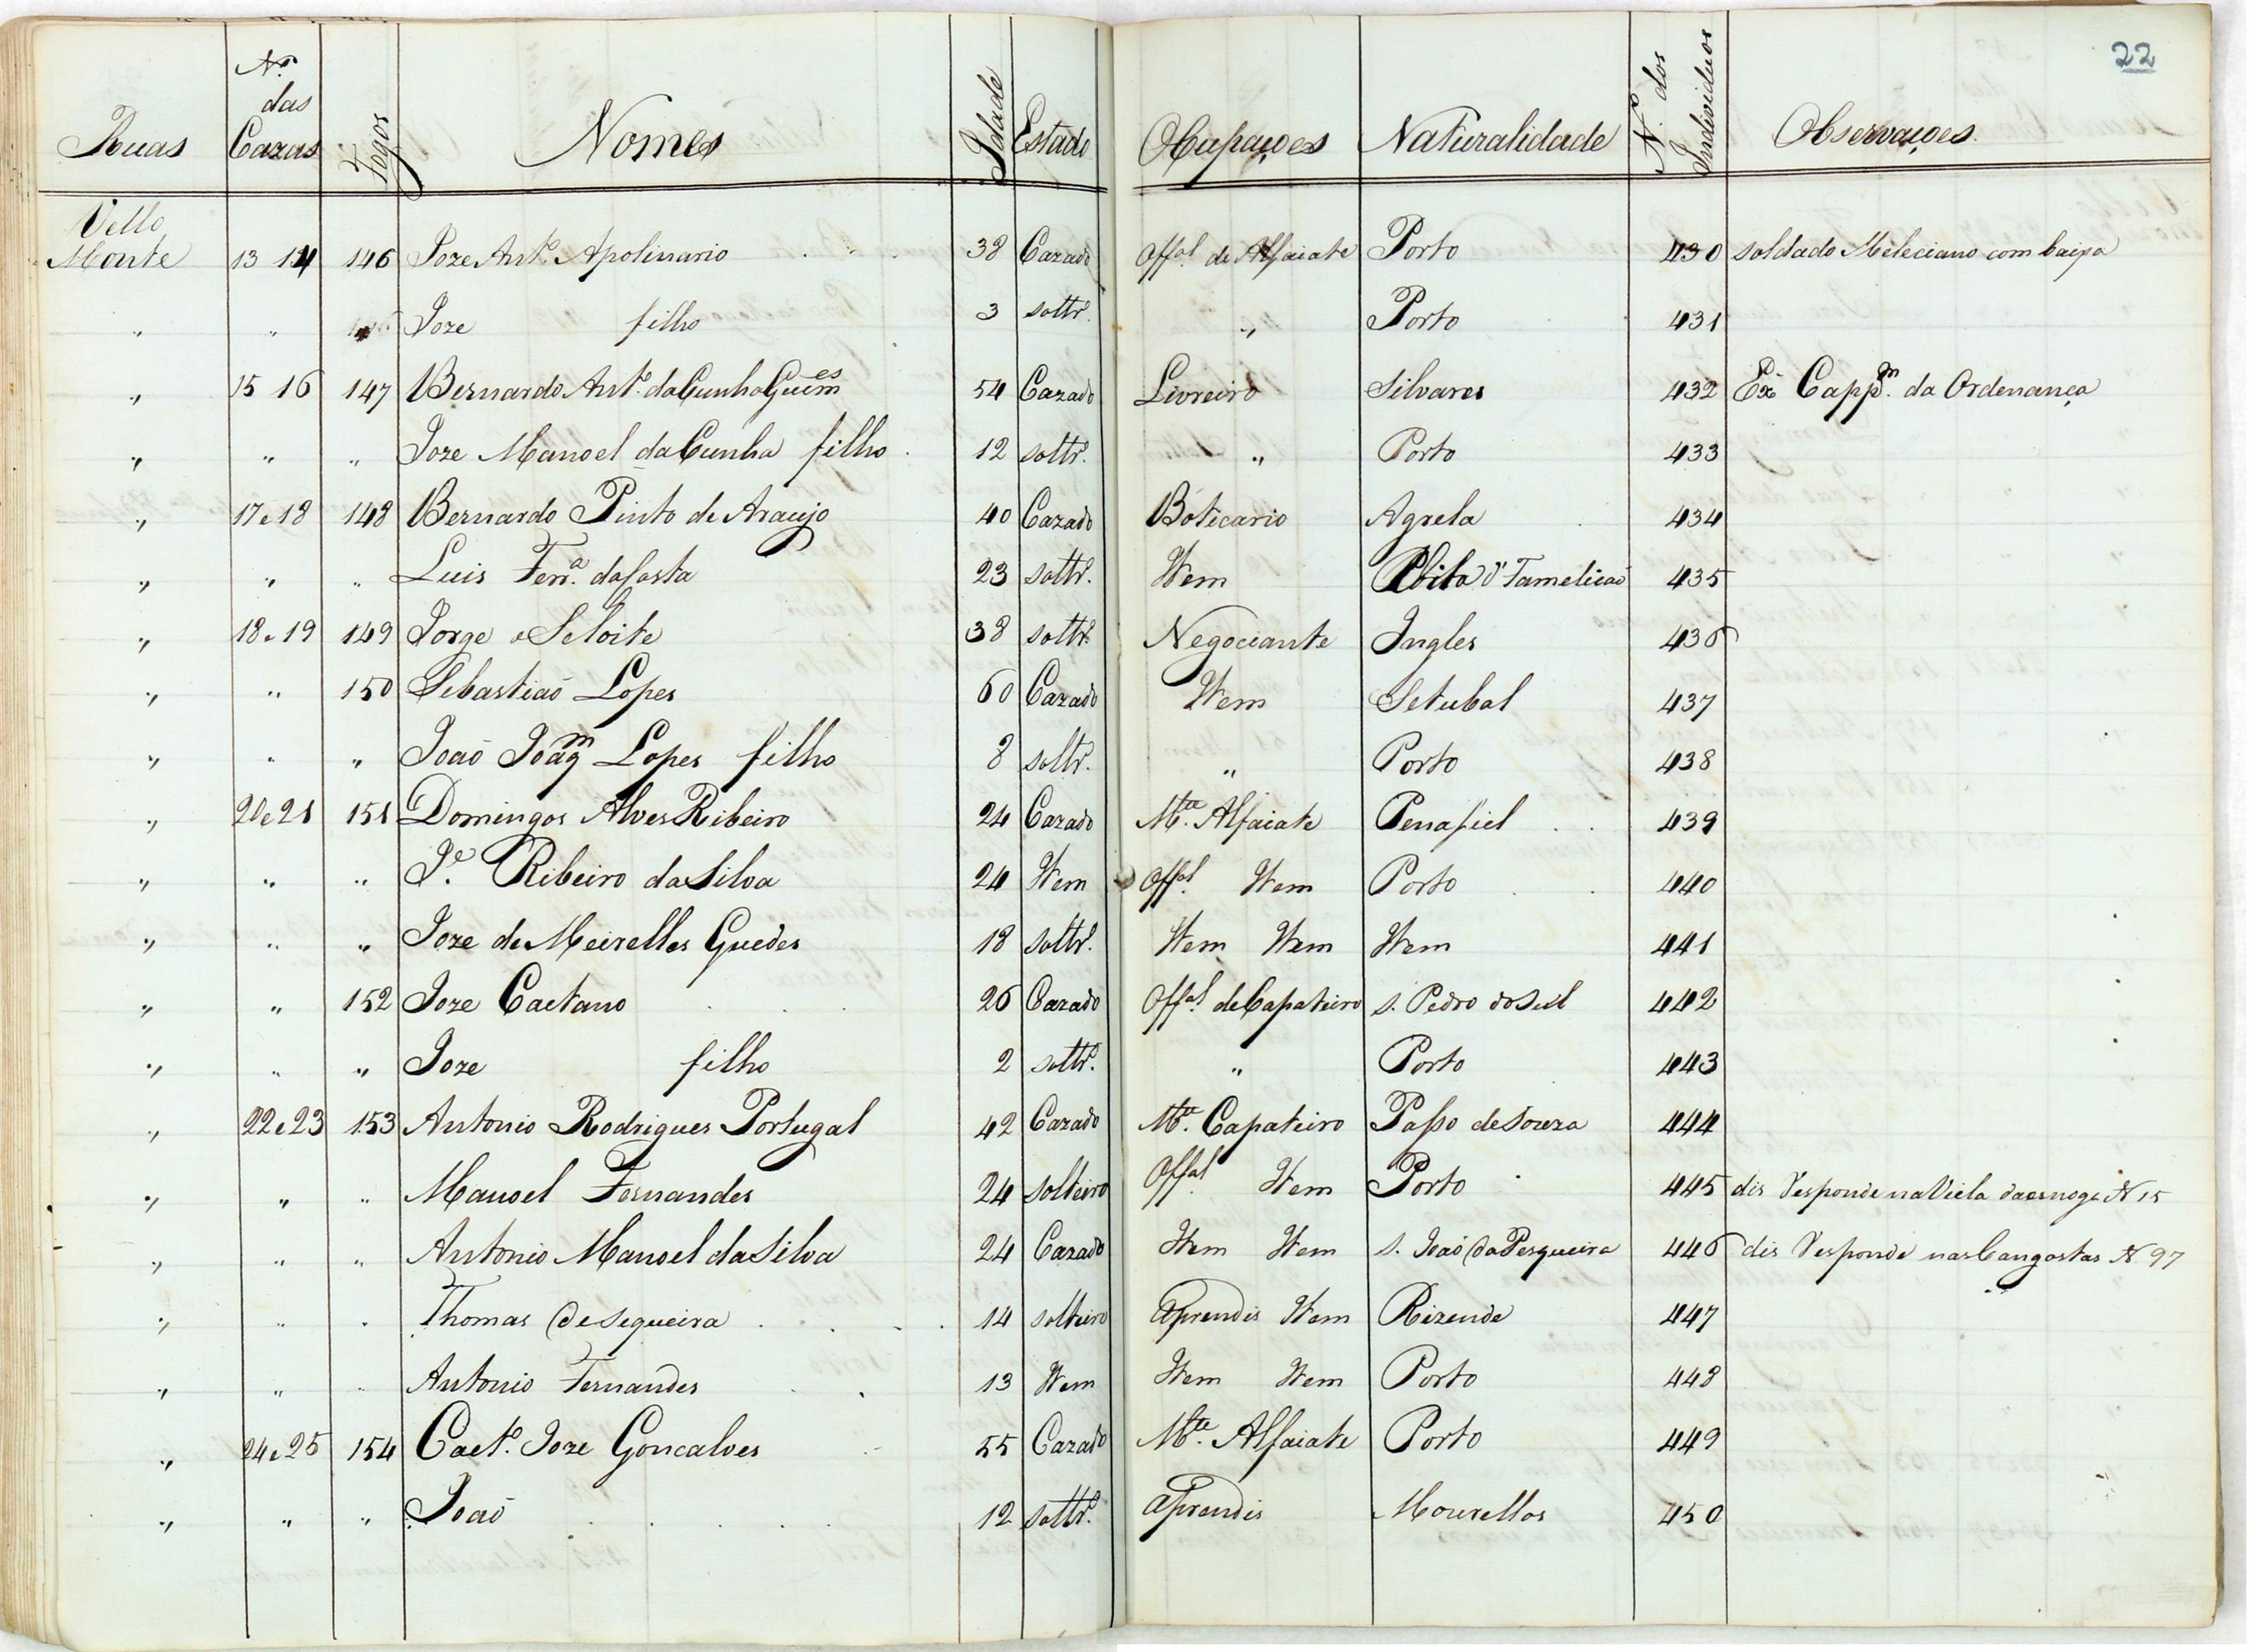 22
Ruas Nº das Cazas Fogos Nomes Idade Estado Occupaçoes Naturalidade N. dos Individuos Observaçoes.
Bello
Monte 13 14 146 Joze Antº Apolinario 38 Cazado Offal de Alfaiate Porto 430 soldado Meleciano com baixa
" " Joze filho 3 soltrº " Porto 431
" 15 16 147 Bernardo Antº da Cunha Guimes 54 Cazado Livreiro Silvares 432 Ex Cappm da Ordenança
" " " Joze Manoel da Cunha filho 12 soltrº " Porto 433
" 17 e 18 148 Bernardo Pinto de Araujo 40 Cazado Boticario Agrela 434
" " " Luis Ferrª da Costa 23 soltrº Item d'Famelicaõ 435
" 18 e 19 149 Jorge 38 soltrº Negociante Ingles 436
" " 150 Sebastiaõ Lopes 60 Cazado Item Setubal 437
" " " Joaõ Joaqm Lopes filho 8 soltrº " Porto 438
" 20 e 21 151 Domingos Alves Ribeiro 24 Cazado Mte Alfaiate Penafiel 439
" " " Je Ribeiro da Silva 24 Item Offal Item Porto 440
" " " Joze de Meirelles Guedes 18 soltrº Item Item Item 441
" " 152 Joze Caetano 26 Cazado Offal de Çapateiro S. Pedro do Sul 442
" " " Joze filho 2 soltrº " Porto 443
" 22 e 23 153 Antonio Rodrigues Portugal 42 Cazado Me Çapateiro Passo de Souza 444
" " " Manoel Fernandes 24 solteiro Offal Item Porto 445 dis Responde na Viela da esnoga N 15
" " " Antonio Manoel da Silva 24 Cazado Item Item S. Joaõ da Pesqueira 446 dis Responde nas Cangostas N 97
" " " Thomas de Sequeira 14 solteiro Aprendis Item Rizende 447
" " " Antonio Fernandes 13 Item Item Item Porto 448
" 24 e 25 154 Caetº Joze Goncalves 55 Cazado Mte Alfaiate Porto 449
" " " Joaõ 12 soltrº Aprendis Mourellos 450